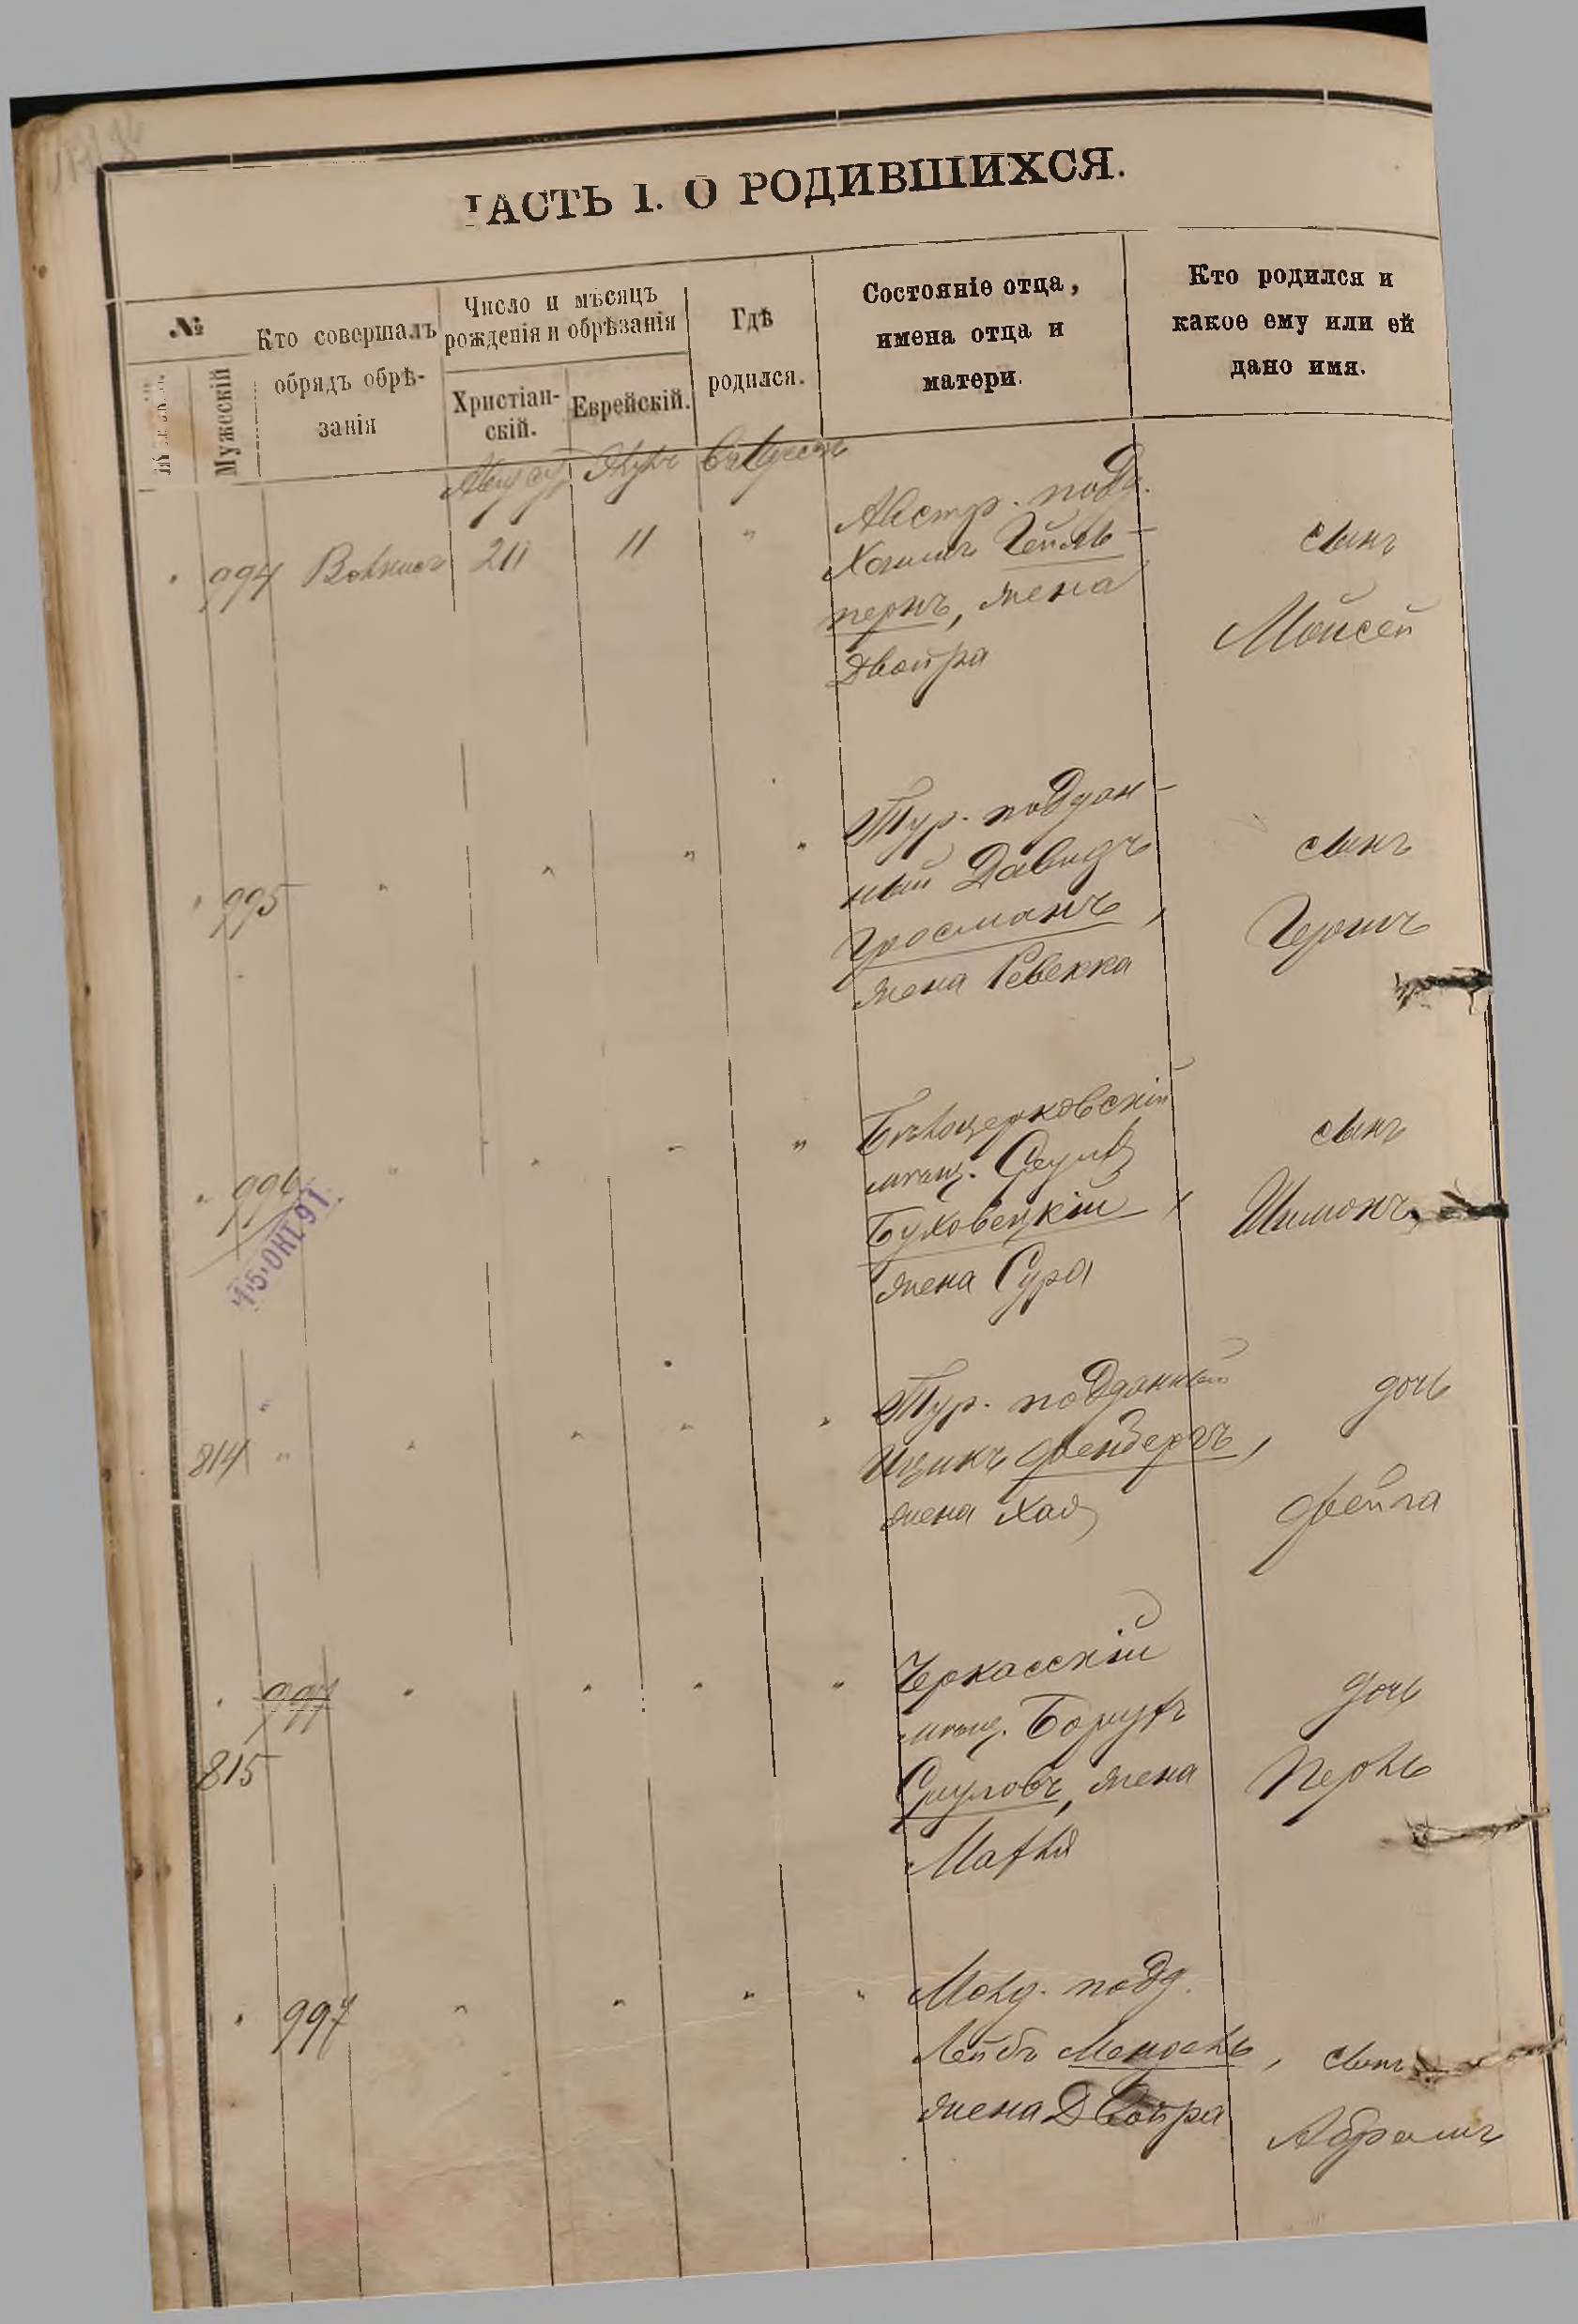 ЧАСТЬ I. О РОДИВШИХСЯ.
№
Мужескій
Кто совершалъ
обрядъ обрѣ-
занія
Число и мѣсяцъ
рожденія и обрѣзанія
Христіан-
скій.
Еврейскій.
Гдѣ
родился.
Состояніе отца,
имена отца и
матери.
Кто родился и
какое ему или ей
дано имя.
Август
" 994
11 "
Австр. подд.
Хаимъ Гейль-
пернъ, жена
Двойра
сынъ
Мойсей
" 995 " " " "
Тур. поддан-
ный Давидъ
Гросманъ,
жена Ревекка
сынъ
Гершъ
" 996 " " " "
15 ОКТ 91
Бѣлоцерковскій
мѣщ. Сруль
Буховецкій,
жена Сура
сынъ
Шимонъ
814 " " " " "
Тур. подданный
Ицикъ Фенбергъ,
жена Хая
дочь
Фейга
" 997 " " " "
815
Черкасскій
мѣщ. Борухъ
Сруловъ, жена
Махля
дочь
Перль
" 997 " " " "
Молд. подд.
Лейбъ Мендель,
жена Двойра
сынъ
Абрамъ